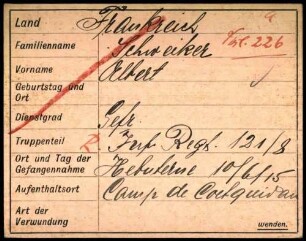 Land Frankreich
Familienname Schweiker
Vorname Albert
Geburtstag und Ort
Dienstgrad Gefr.
Truppenteil Inf Regt. 121/8
Ort und Tag der Gefangennahme Hebuterne 10/6/15
Aufenthaltsort Camp de Coetquidan
Art der Verwundung
wenden.